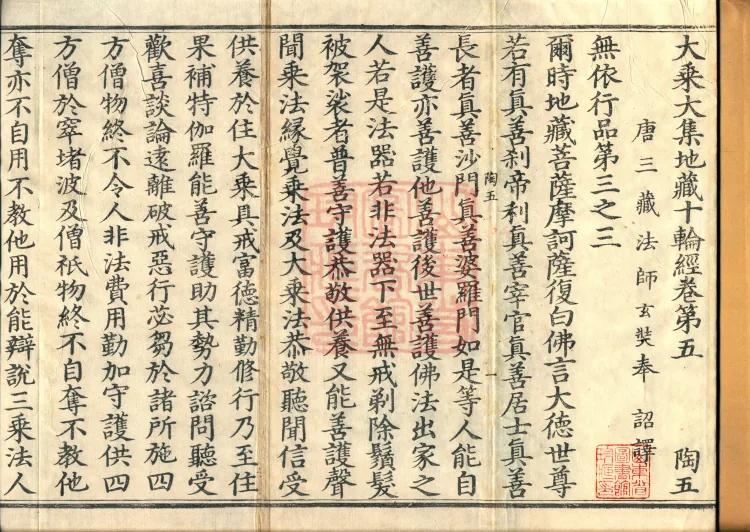 大乘大集地藏十輪經卷第五 陶五
唐三藏法師玄奘奉 詔譯
無依行品第三之三
爾時地藏菩薩摩訶薩復白佛言大德世尊
若有眞善刹帝利眞善宰官眞善居士眞善
長者眞善沙門眞善婆羅門如是等人能自
陶五 一
善護亦善護他善護後世善護佛法出家之
人若是法器若非法器下至無戒剃除鬚髮
被袈裟者普善守護恭敬供養又能善護聲
聞乘法緣覺乘法及大乘法恭敬聽聞信受
供養於住大乘具戒富德精勤修行乃至住
果補特伽羅能善守護助其勢力諮問聽受
歡喜談論遠離破戒惡行苾芻於諸所施四
方僧物終不令人非法費用勤加守護供四
方僧於窣堵波及僧祇物終不自奪不教他
奪亦不自用不教他用於能辯說三乘法人